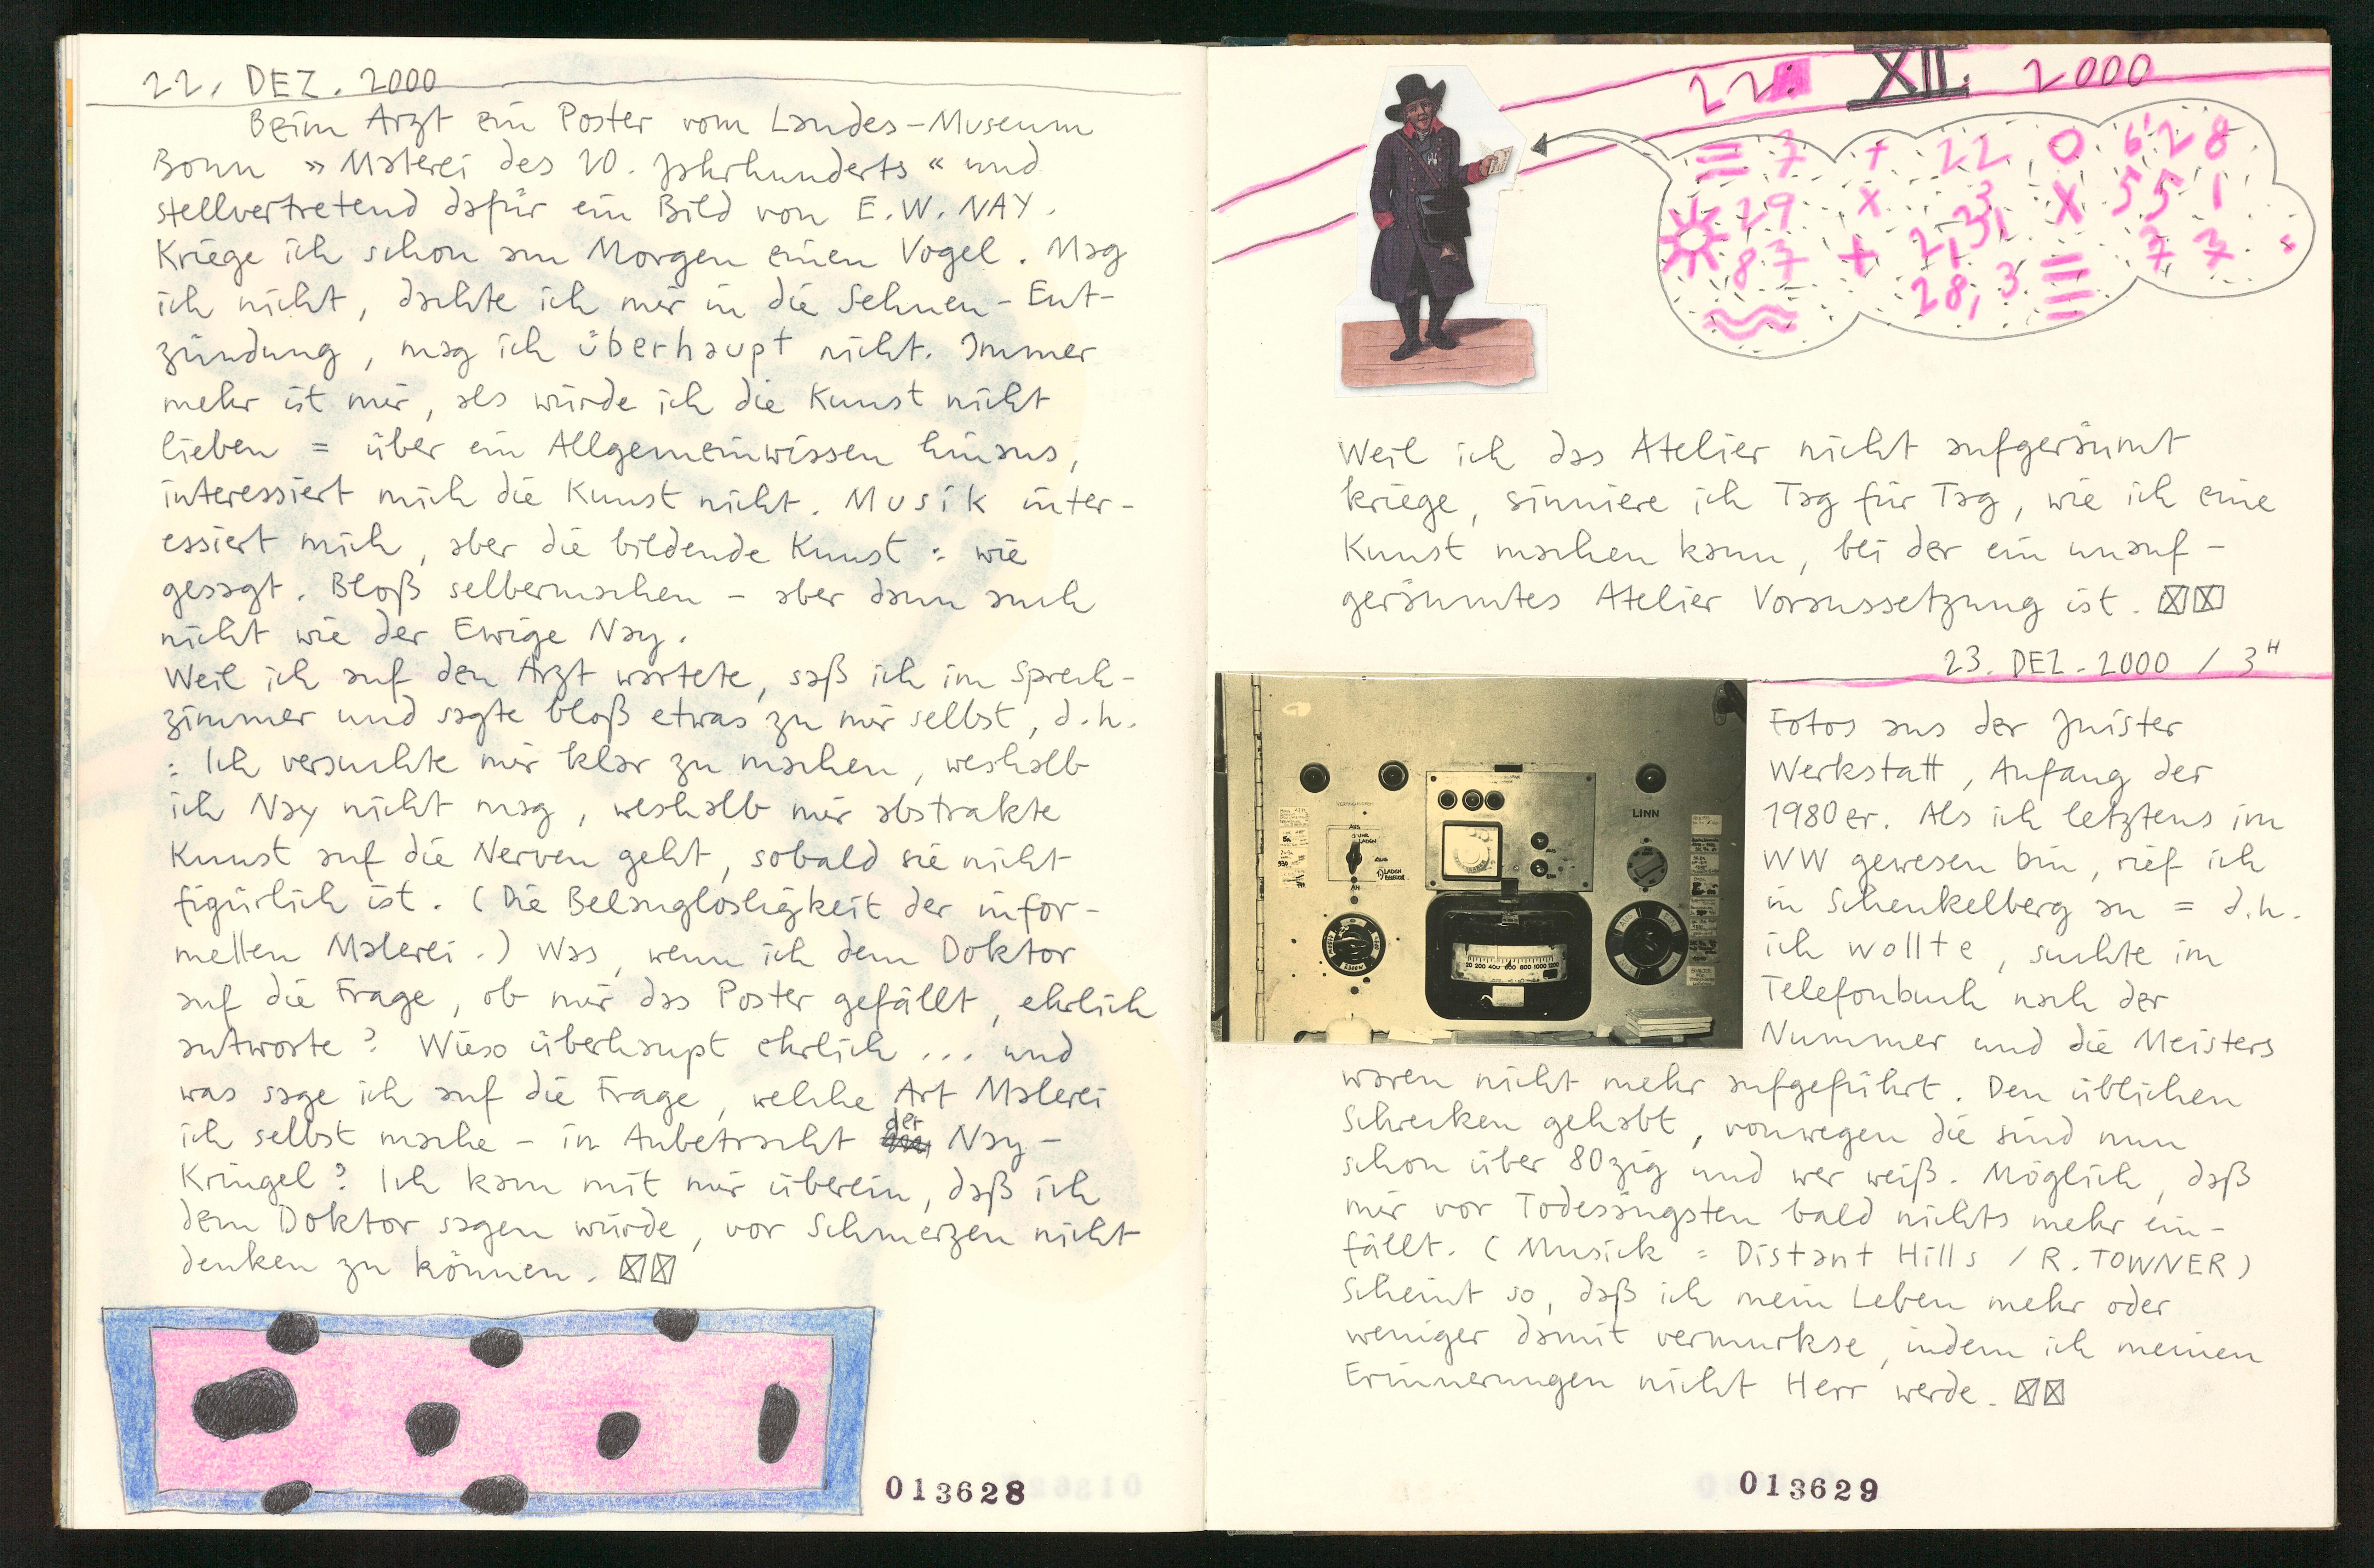 22. DEZ. 2000
Beim Arzt ein Poster vom Landes-Museum
Bonn »Malerei des 20. Jahrhunderts« und
stellvertretend dafür ein Bild von E.W. NAY.
Kriege ich schon am Morgen einen Vogel. Mag
ich nicht, dachte ich mir in die Sehnen-Ent-
zündung, mag ich überhaupt nicht. Immer
mehr ist mir, als würde ich die Kunst nicht
lieben = über ein Allgemeinwissen hinaus,
interessiert mich die Kunst nicht. Musik inter-
essiert mich, aber die bildende Kunst : wie
gesagt. Bloß selbermachen - aber dann auch
nicht wie der Ewige Nay.
Weil ich auf den Arzt wartete, saß ich im Sprech-
zimmer und sagte bloß etwas zu mir selbst, d.h.
: Ich versuchte mir klar zu machen, weshalb
ich Nay nicht mag, weshalb mir abstrakte
Kunst auf die Nerven geht, sobald sie nicht
figürlich ist. (Die Belanglosigkeit der infor-
mellen Malerei.) Was, wenn ich dem Doktor
auf die Frage, ob mir das Poster gefällt, ehrlich
antworte? Wieso überhaupt ehrlich ... und
was sage ich auf die Frage, welche Art Malerei
ich selbst mache - in Anbetracht der Nay-
Kringel? Ich kam mit mir überein, daß ich
dem Doktor sagen würde, vor Schmerzen nicht
denken zu können.
013628
22. XII. 2000
= 7 + 22 O 6'28
29 x 33 X 55 1
87 + 2,31 7 7
28,3
Weil ich das Atelier nicht aufgeräumt
kriege, sinniere ich Tag für Tag, wie ich eine
Kunst machen kann, bei der ein unauf-
geräumtes Atelier Voraussetzung ist.
23. DEZ. 2000 / 3H
LINN
20 200 400 600 800 1000 1200
Fotos aus der Juister
Werkstatt, Anfang der
1980er. Als ich letztens im
WW gewesen bin, rief ich
in Schenkelberg an = d.h.
ich wollte, suchte im
Telefonbuch nach der
Nummer und die Meisters
waren nicht mehr aufgeführt. Den üblichen
Schrecken gehabt, vonwegen die sind nun
schon über 80zig und wer weiß. Möglich, daß
mir vor Todesängsten bald nichts mehr ein-
fällt. (Musick = Distant Hills / R. TOWNER)
Scheint so, daß ich mein Leben mehr oder
weniger damit vermurkse, indem ich meinen
Erinnerungen nicht Herr werde.
013629